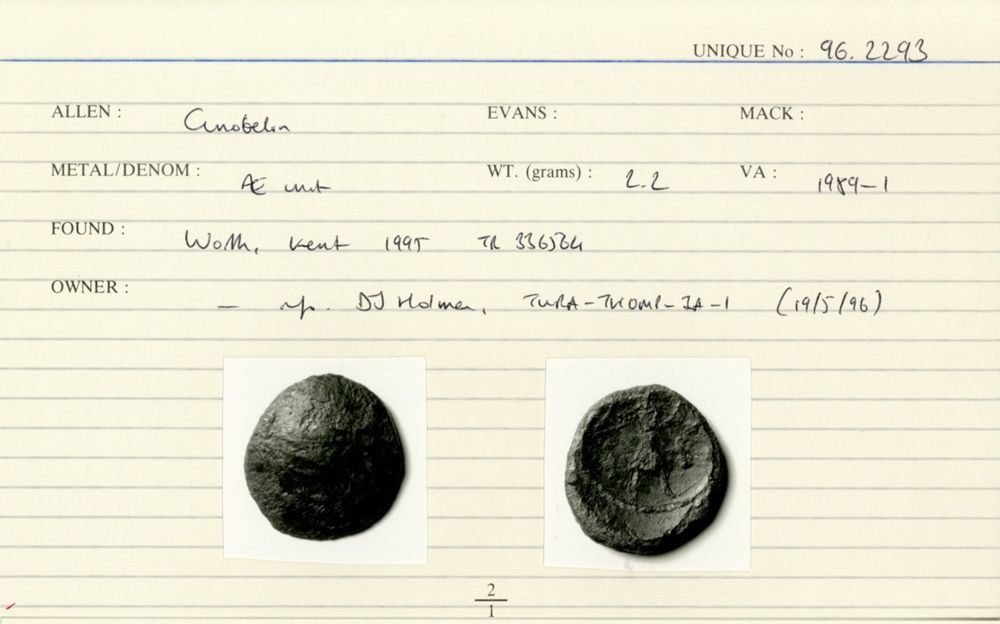 UNIQUE No : 96.2293
ALLEN : Cunobelin EVANS : MACK :
METAL/DENOM : Æ unit WT. (grams) : 2.2 VA : 1989-1
FOUND : Worth, Kent 1995 TR 336564
OWNER : — DJ Holman, (19/5/96)
2
1